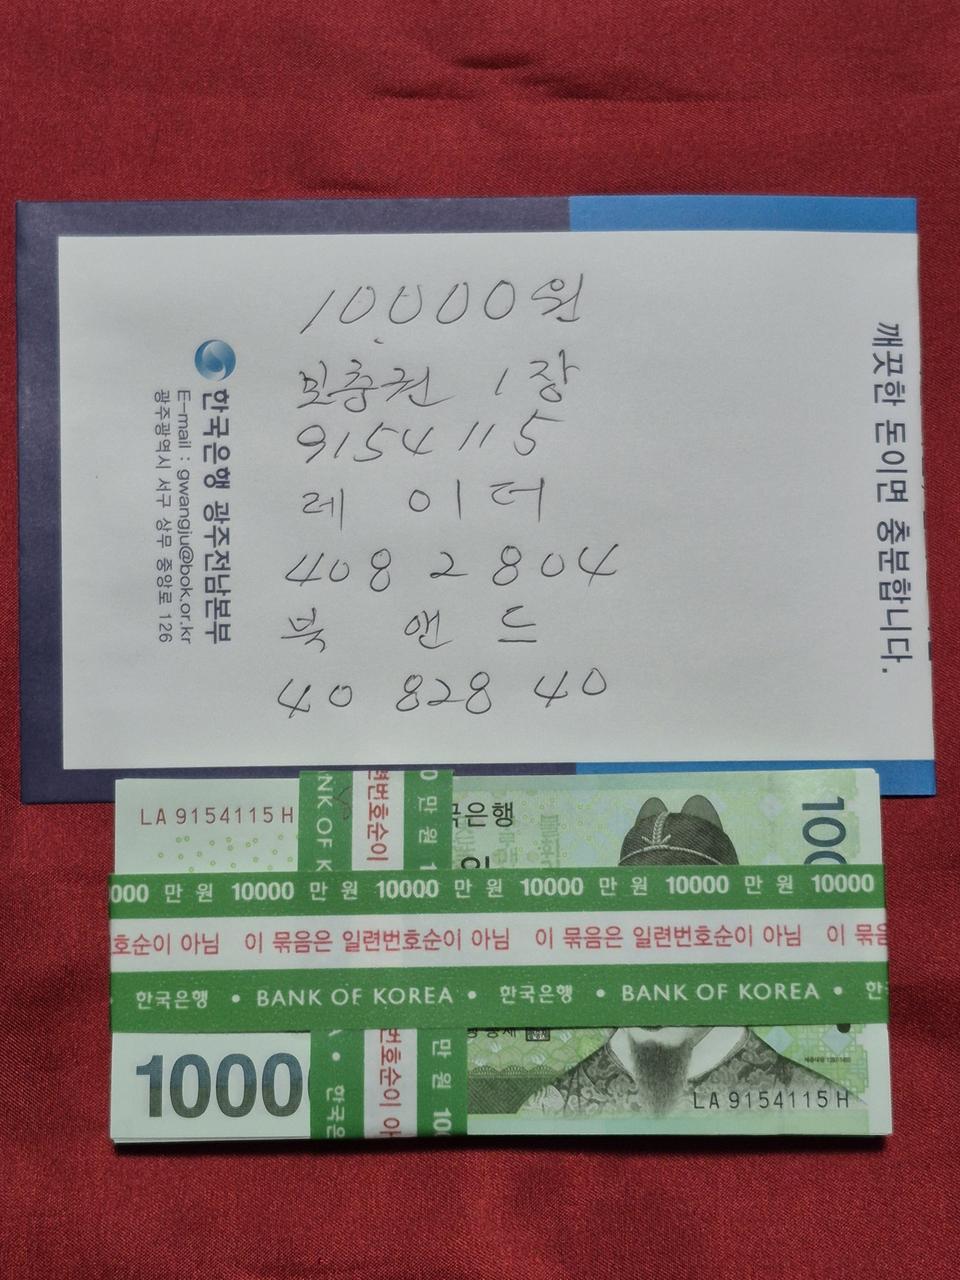 10000원
보충권 1장
9154115
레이더
4082804
북 앤드
4082840
한국은행 광주전남본부
E-mail : gwangju@bok.or.kr
광주광역시 서구 상무 중앙로 126
깨끗한 돈이면 충분합니다.
LA 9154115 H
NK OF K
련번호순이
0 만 원 1
국은행
100
000 만 원 10000 만 원 10000 만 원 10000 만 원 10000 만 원 10000
호순이 아님 이 묶음은 일련번호순이 아님 이 묶음은 일련번호순이 아님 이 묶음
한국은행 • BANK OF KOREA • 한국은행 • BANK OF KOREA • 한
1000
한국은
번호순이 아
만 원 100
LA 9154115 H